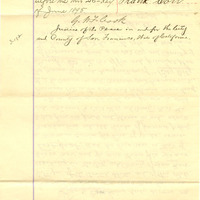 before me this 24th day Frank Worn
of June 1885
G. W. F. Cook
Justice of the Peace in and for the City
and County of San Francisco, State of California